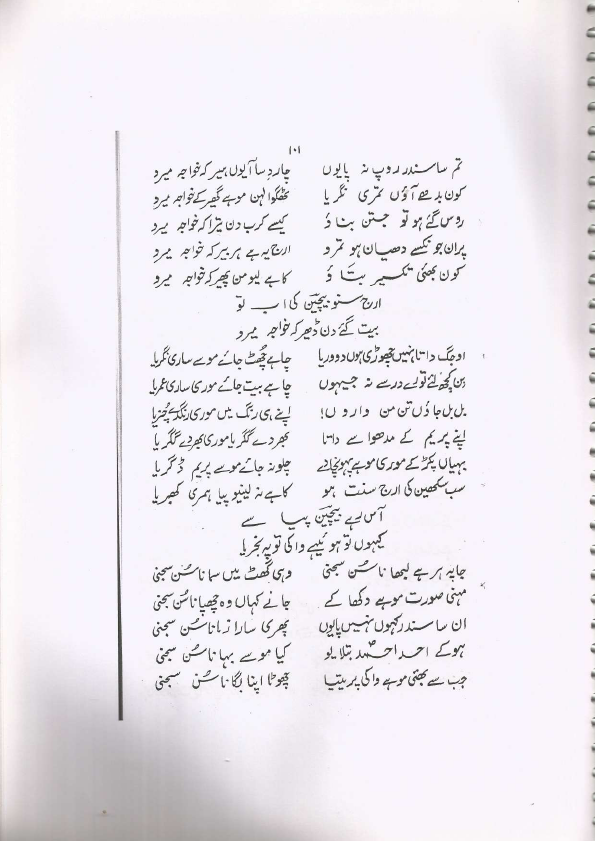 ۱۰۱
تم سا سندر روپ نہ پایوں چار دسا آیوں ہیر کہ خواجہ میرو
کون بدھے آؤں تمری نگریا ٹھگوا لہن موہے گھیر کے خواجہ میرو
روس گئے ہو تو جتن بتاؤ کیسے کرب دن تیرا کہ خواجہ میرو
پران جو نکسے دھیان ہو تمرو ارج یہ ہے ہر بیر کہ خواجہ میرو
کون بھئی تکسیر بتاؤ کاہے لیو من پھیر کہ خواجہ میرو
ارج سنو بیچین کی اب تو
بیت گئے دن ڈھیر کہ خواجہ میرو
او جگ داتا نہیں چھوڑی ہوں دوریا چاہے چھٹ جائے موسے ساری نگریا
دن کچھ تورے درسے نہ جیہوں چاہے بیت جائے موری ساری عمریا
بل بل جاؤں تن من واروں! اپنے ہی رنگ میں موری رنگدے چنریا
اپنے پریم کے مدھوا سے داتا بھر دے گگریا موری بھر دے گگریا
بہیاں پکڑ کے موری موہے پہونچا دے چلو نہ جائے موسے پریم ڈگریا
سب سکھین کی ارج سنت ہو کاہے نہ لینیو پیا ہمری کھبریا
آس لہے بیچین پیا سے
کبہوں تو ہوئیہے واکی تو پہ نجریا
جا پہ ہر ہے لبھانا سُن سجنی وہی گھٹ میں سمانا سُن سجنی
مہنی صورت موہے دکھا کے جانے کہاں وہ چھپا نا سُن سجنی
ان سا سندر کہوں نہیں پایوں پھری سارا زمانا سُن سجنی
ہوکے احد احمدؐ بتلایو کیا موسے بہانا سُن سجنی
جب سے بھئی موہے واکی پریتیا چھوٹا اپنا بگانا سُن سجنی